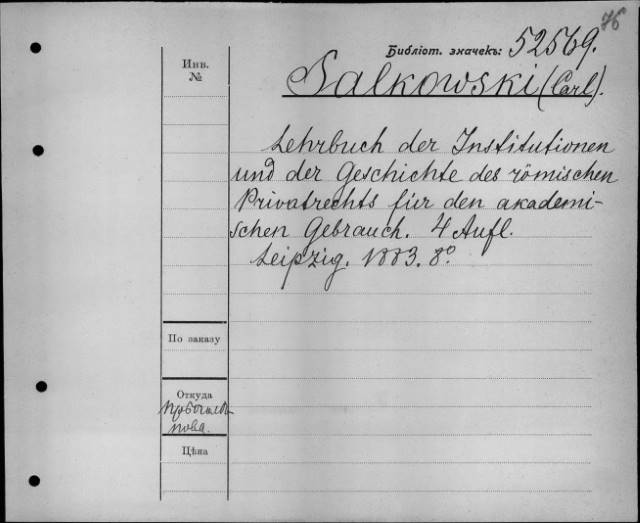 76
Библіот. значекъ: 52569.
Инв.
№
Salkowski (Carl).
Lehrbuch der Institutionen
und der Geschichte des römischen
Privatrechts für den akademi-
schen Gebrauch. 4 Aufl.
Leipzig. 1883. 8º
По заказу
Откуда
нова.
Цѣна